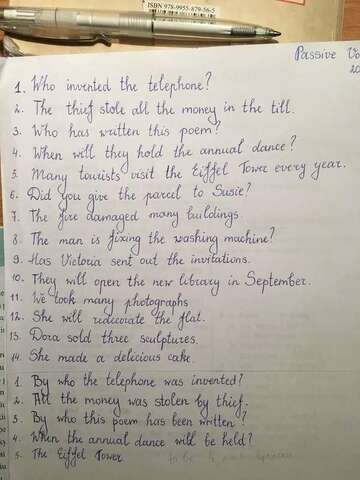 ISBN 978-9955-879-56-5
Passive Vo
20
1. Who invented the telephone?
2. The thief stole all the money in the till.
3. Who has written this poem?
4. When will they hold the annual dance?
5. Many tourists visit the Eiffel Tower every year.
6. Did you give the parcel to Susie?
7. The fire damaged many buildings.
8. The man is fixing the washing machine?
9. Has Victoria sent out the invitations.
10. They will open the new library in September.
11. We took many photographs
12. She will redecorate the flat.
13. Dora sold three sculptures.
14. She made a delicious cake.
1. By who the telephone was invented?
2. All the money was stolen by thief.
3. By who this poem has been written?
4. When the annual dance will be held?
5. The Eiffel Tower